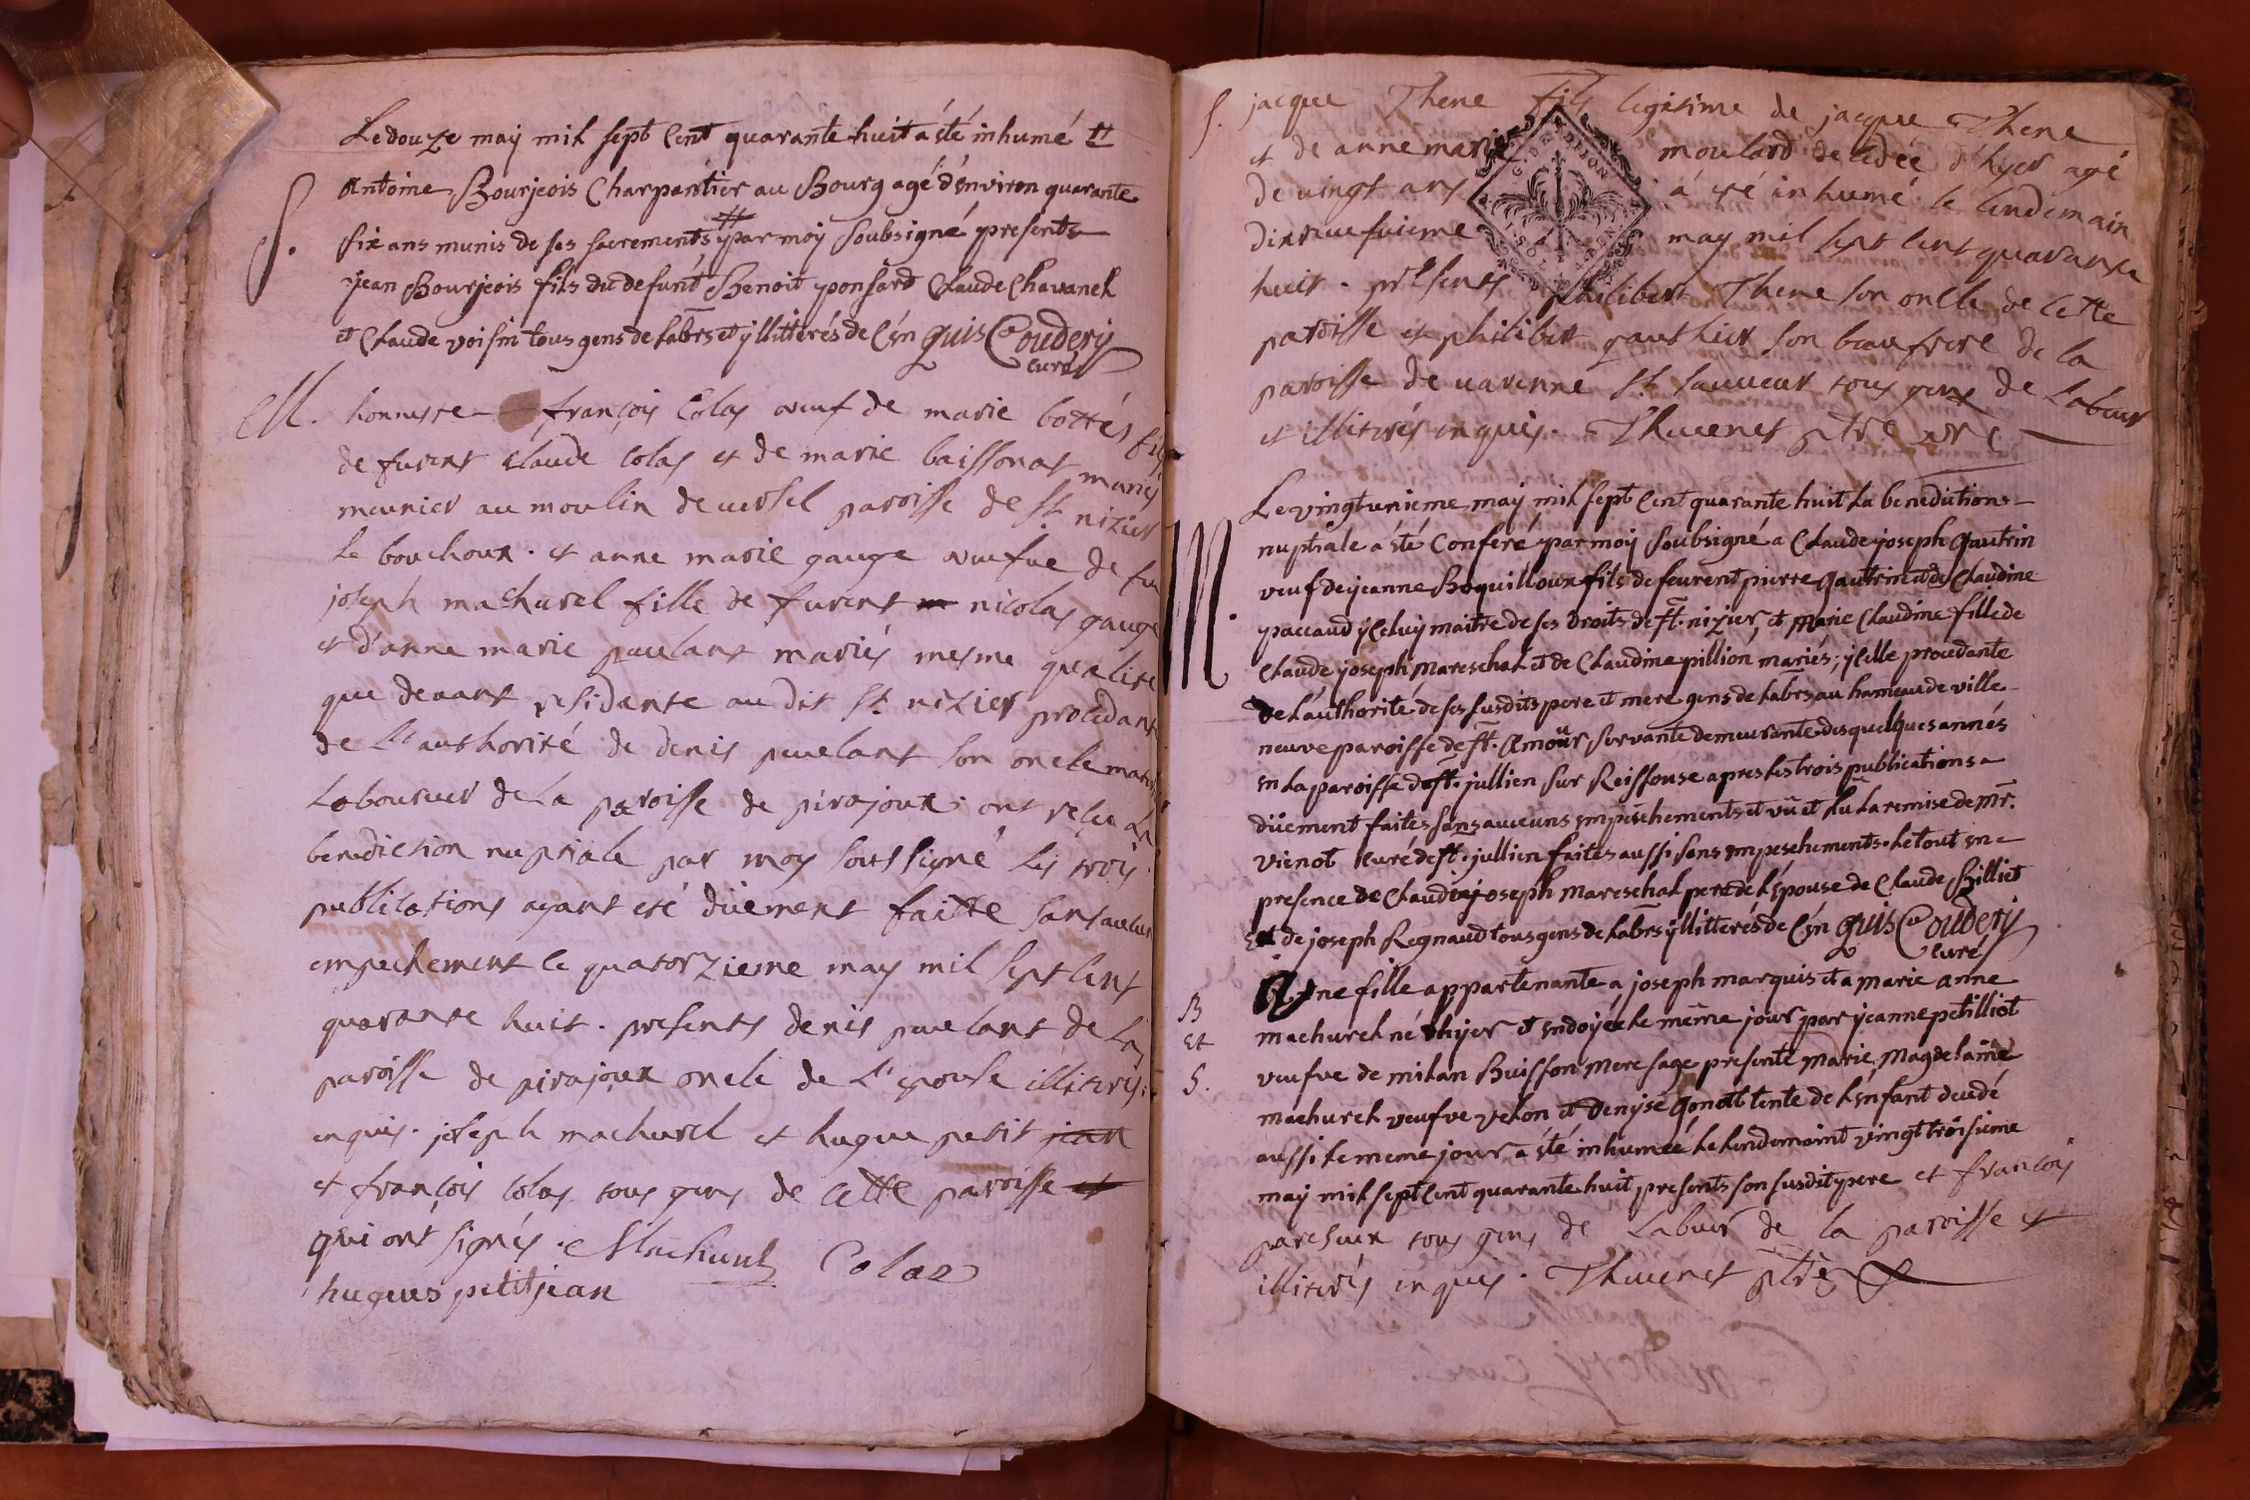 Le douze may mil sept cent quarante huit a été inhumé #
S. Antoine Bourjeois Charpantier au Bourg agé d'environ quarante
six ans munis de ses sacrements # par moy soubsigné presents
jean Bourjeois fils du defunt Benoit ponsard Claude Chavanel
et Claude voisin tous gens de labrs et yllitterés de Cen quis Coudery
curé
M. honneste françois Colas veuf de marie bottés fils
de furent Claude Colas et de marie baissonat mariés
meunier au moulin de versel paroisse de st nizier
le bouchoux. et anne marie gauge veufve de fu
joseph machurel fille de furent nicolas gauge
et d'anne marie paulant mariés mesme qualité
que devant residante au dit st nizier procedant
de l'authorité de denis pauelant son oncle
Laboureur de La paroisse de pirajoux. ont reçu la
benediction nuptiale par moy soussigné les trois
publications ayant eté düement faitte sans aucun
empechement le quatorzieme may mil sept cent
quarante huit. presents denis pauelant de La
paroisse de pirajoux oncle de L'epouse illiterés
enquis. joseph machurel et hugue petit jean
et françois Colas tous gens de cette paroisse et
qui ont signés. Machurel Colas
hugues petitjean
S. jacque Thene fils legitime de jacque Thene
et de anne marie moulard decedée d'hyer agé
de vingt ans á eté inhumé le lendemain
dixneufuieme may mil sept cent quarante
huit. presents philibert Thene son oncle de cette
paroisse et philibert gauthier son beaufrere de la
paroisse de varenne st sauveur tous gens de Labeur
et illiterés enquis. Thevenet ptre
Le vingtunieme may mil sept cent quarante huit la benedictions
nuptiale a été Conferé par moy soubsigné a Claude joseph Gautrin
M. veuf de jeanne Boquilloux fils de feurent pierre Gautrin et de Claudine
paccaud yceluy maitre de ses droits de st. nizier, et Marie Claudine fille de
Claude joseph Mareschal et de Claudine pillion mariés; ycelle procedante
de L'authorité de ses susdits pere et mere gens de labrs au hameau de ville
neuve paroisse de st. Amour, servante demeurante des quelques annés
en la paroisse de st. jullien sur Reissouse apres les trois publications
düement faites sans aucuns empeschements et vü et lu la remise de mr.
vienot curé de st. jullien faites aussi sans empeschements. le tout en
presence de Claude joseph mareschal pere de L'épouse de Claude Billiet
Et de joseph Regnaud tous gens de labrs yllitterés de Cen quis Coudery
curé
B Une fille appartenante a joseph marquis et a marie anne
Et machurel né d'hyer et endoyée le même jour par jeanne petilliot
S. veufve de milan Buisson mere sage presente Marie Magdelaine
machurel veufve velon et Denyse Gonot tente de L'enfant decedé
aussi le meme jour a été inhumée le lendemaint vingt troisieme
may mil sept cent quarante huit presents son susdit pere et françois
parchoux tous gens de Labeur de la paroisse et
illiterés enques. Thevenet ptre